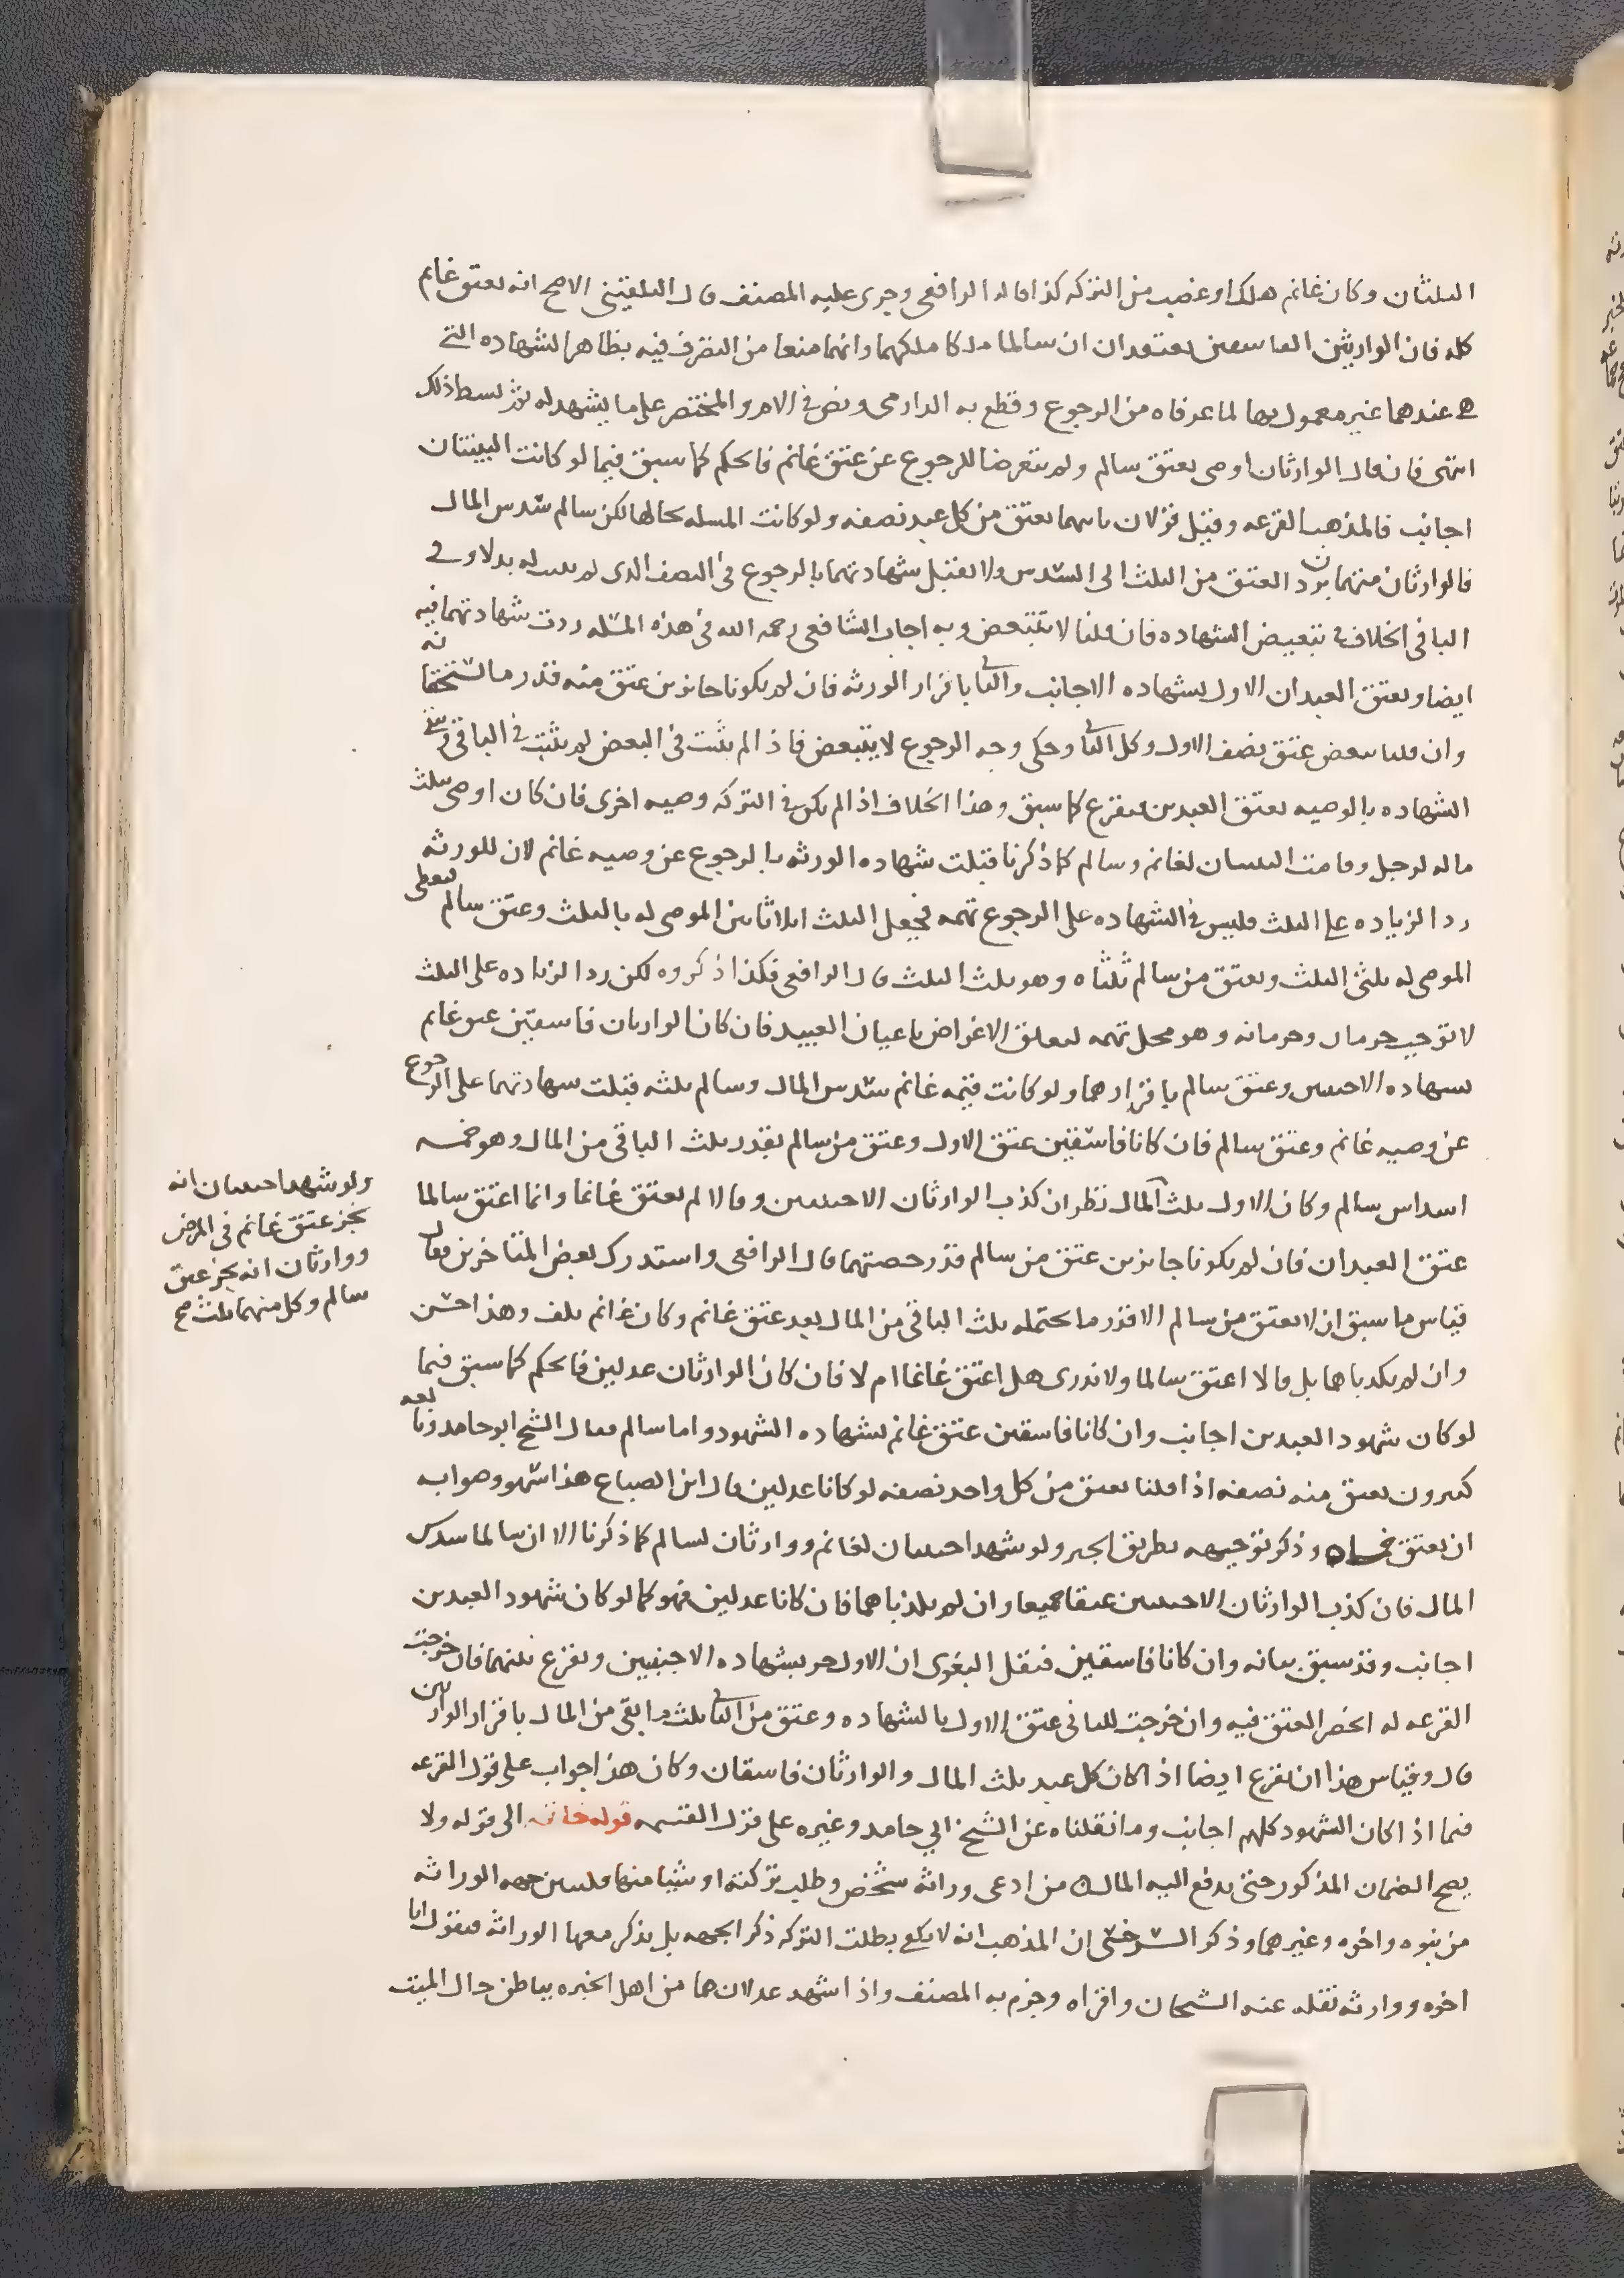 الثلثان وكان غانم هلك او غصب من التركه كذا قاله الرافعي وجرى عليه المصنف قال البلقيني الاصح انه يعتق غانم
كله فان الوارثين الفاسقين يعتقدان ان سالما ملكا ملكهما وانهما منعا من التصرف فيه بظاهر الشهاده التي
هي عندهما غير معمول بها لما عرفاه من الرجوع وقطع به الدارمي ونص في الام والمختصر على ما يشهد له ثم بسط ذلك
انتهى فان قال الوارثان اوصى بعتق سالم ولم يتعرضا للرجوع عن عتق غانم فالحكم كما سبق فيما لو كانت البينتان
اجانب فالمذهب القرعه وقيل قولان ثانيهما يعتق من كل عبد نصفه ولو كانت المسله بحالها لكن سالم سدس المال
فالوارثان متهمان برد العتق من الثلث الى السدس ولا تقبل شهادتهما بالرجوع في النصف الذي لم يثبت له بدلا وفي
الباقي الخلاف في تبعيض الشهاده فان قلنا لا تتبعض وبه اجاب الشافعي رحمه الله في هذه المسله ردت شهادتهما فيه
ايضا ويعتق العبدان الاول بشهاده الاجانب والثاني باقرار الورثه فان لم يكونا حائزين عتق منه قدر ما يستحقانه
وان قلنا تتبعض عتق نصف الاول وكل الثاني وحكى وجه الرجوع لا يتبعض فاذا لم يثبت في البعض لم يثبت في الباقي وتبقى
الشهاده بالوصيه بعتق العبدين فيقرع كما سبق وهذا الخلاف اذا لم يكن في التركه وصيه اخرى فان كان اوصى بثلث
ماله لرجل وقامت البينتان لغانم وسالم كما ذكرنا قبلت شهاده الورثه بالرجوع عن وصيه غانم لان للورثه
رد الزياده على الثلث فليس في الشهاده على الرجوع تهمه فيجعل الثلث اثلاثا بين الموصى له بالثلث وعتق سالم ليعطى
الموصى له ثلثي الثلث ويعتق من سالم ثلثاه وهو ثلث الثلث قال الرافعي هكذا ذكروه لكن رد الزياده على الثلث
لا توجب حرمان وحرمانه وهو محل تهمه لتعلق الاغراض باعيان العبيد فان كان الوارثان فاسقين عتق غانم
بشهاده الاجنبيين وعتق سالم باقرارهما ولو كانت قيمه غانم سدس المال وسالم ثلثه قبلت شهادتهما على الرجوع
عن وصيه غانم وعتق سالم فان كانا فاسقين عتق الاول وعتق من سالم بقدر ثلث الباقي من المال وهو خمسه
اسداس سالم وكان الاول ثلث المال نظر ان كذب الوارثان الاجنبيين وقالا لم يعتق غانما وانما اعتق سالما
عتق العبدان فان لم يكونا حائزين عتق من سالم قدر حصتهما قال الرافعي واستدرك بعض المتاخرين فقال
قياس ما سبق ان لا يعتق من سالم الا قدر ما يحتمله ثلث الباقي من المال بعد عتق غانم وكان غانم تلف وهذا حسن
وان لم يكذباهما بل قالا اعتق سالما ولا ندري هل اعتق غانما ام لا فان كان الوارثان عدلين فالحكم كما سبق فيما
لو كان شهود العبدين اجانب وان كانا فاسقين عتق غانم بشهاده الشهود واما سالم فقال الشيخ ابو حامد وتابعه
كثيرون يعتق منه نصفه اذا قلنا يعتق من كل واحد نصفه لو كانا عدلين قال ابن الصباغ هذا سهو وصوابه
ان يعتق خمساه وذكر توجيهه بطريق الجبر ولو شهد اجنبيان لغانم ووارثان لسالم كما ذكرنا الا ان سالما سدس
المال فان كذب الوارثان الاجنبيين عتقا جميعا وان لم يكذباهما فان كانا عدلين فهو كما لو كان شهود العبدين
اجانب وقد سبق بيانه وان كانا فاسقين فنقل البغوي ان الاول حر بشهاده الاجنبيين ويقرع بينهما فان خرجت
القرعه له انحصر العتق فيه وان خرجت للثاني عتق الاول بالشهاده وعتق من الثاني ثلث ما بقي من المال باقرار الوارثين
قال وقياس هذا ان يقرع ايضا اذا كان كل عبد ثلث المال والوارثان فاسقان وكان هذا جواب على قول القرعه
فيما اذا كان الشهود كلهم اجانب وما نقلناه عن الشيخ ابي حامد وغيره على قول القسمه قوله خاتمه الى قوله ولا
يصح الضمان المذكور حتى يدفع اليه المال من ادعى وراثه شخص وطلب تركته او شيا منها فليبين جهه الوراثه
من بنوه واخوه وغيرهما وذكر السرخسي ان المذهب انه لا يكفي بطلب التركه ذكر الجهه بل يذكر معها الوراثه فيقول انا
اخوه ووارثه نقله عنه الشيخان واقراه وجزم به المصنف واذا شهد عدلان هما من اهل الخبره بباطن حال الميت
ولو شهد اجنبيان انه
نجز عتق غانم في المرض
ووارثان انه نجز عتق
سالم وكل منهما ثلث صح